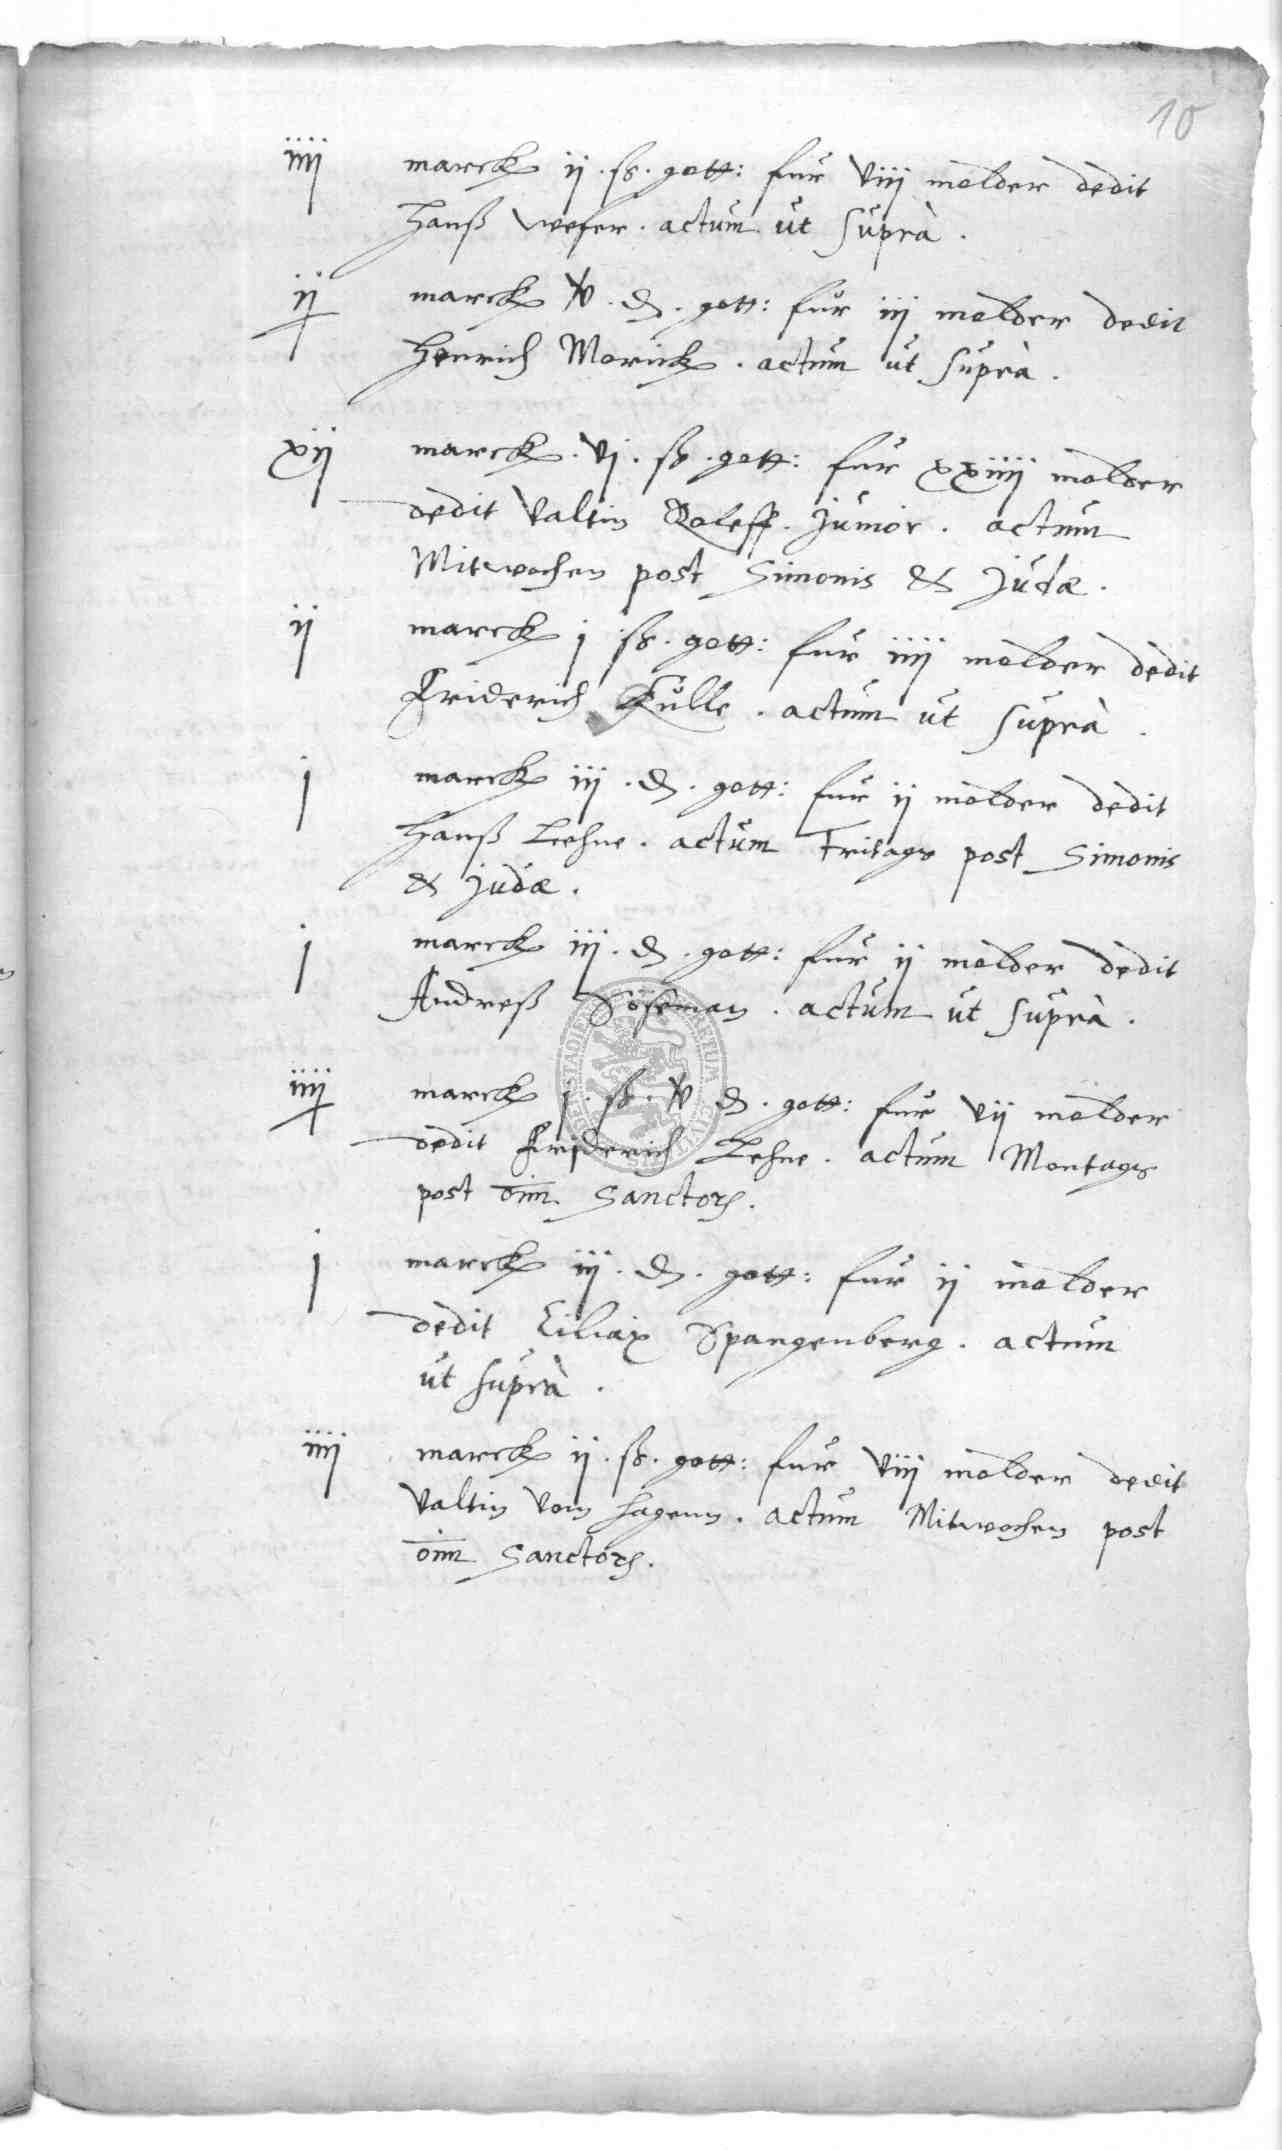 10
iiij marck ij. ß. gott: fur viij molder dedit
Hanß Weser. actum ut suprà.
ij marck v. d. gott: fur iij molder dedit
Henrich Morick. actum ut suprà.
xij marck. vj. ß. gott: fur xxiiij molder
dedit Valtin Roleff. Junior. actum
Mitwochen post Simonis & Judæ.
ij marck j ß. gott: fur iiij molder dedit
Friderich Kulle. actum ut suprà.
j marck iij. d. gott: fur ij molder dedit
Hanß Lehne. actum Fritags post Simonis
& Judæ.
j marck iij. d. gott: fur ij molder dedit
Andreß Söseman. actum ut suprà.
iiij marck j. ß. v d. gott: fur vij molder
dedit Friderich Lehne. actum Montags
post oim Sanctor.
j marck iij. d. gott: fur ij molder
dedit Ciliax Spangenberg. actum
ut suprà.
iiij marck ij. ß. gott: fur viij molder dedit
Valtin vom Hagenn. actum Mitwochen post
oim Sanctor.